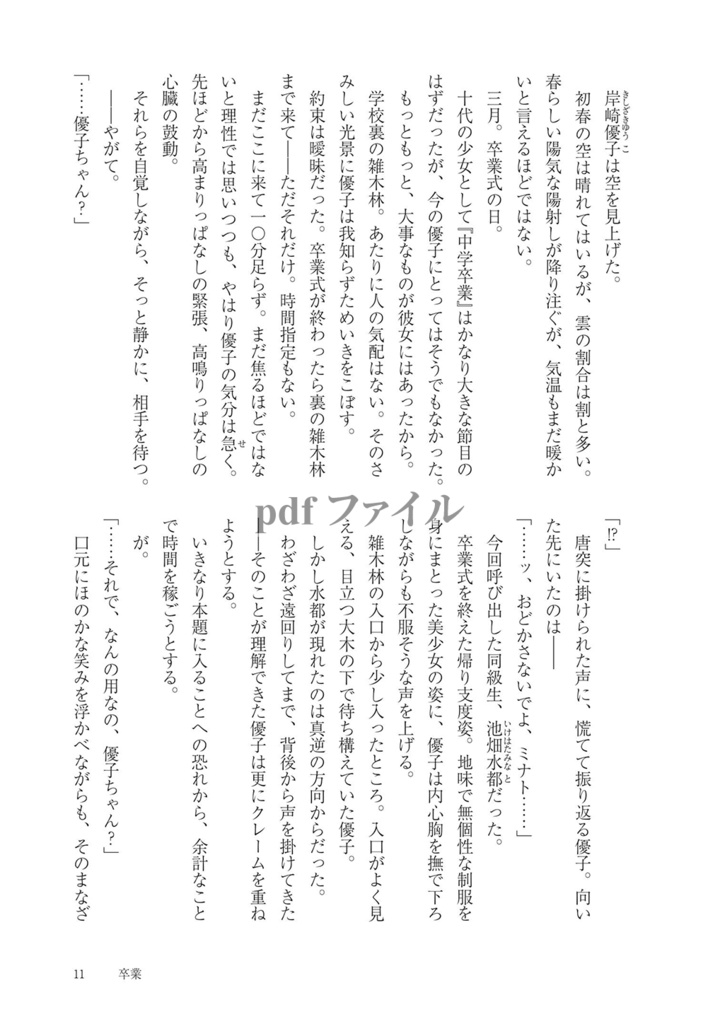 岸崎優子は空を見上げた。
きしざきゆうこ
初春の空は晴れてはいるが、雲の割合は割と多い。
春らしい陽気な陽射しが降り注ぐが、気温もまだ暖か
いと言えるほどではない。
三月。卒業式の日。
十代の少女として『中学卒業』はかなり大きな節目の
はずだったが、今の優子にとってはそうでもなかった。
もっともっと、大事なものが彼女にはあったから。
学校裏の雑木林。あたりに人の気配はない。そのさ
みしい光景に優子は我知らずためいきをこぼす。
約束は曖昧だった。卒業式が終わったら裏の雑木林
まで来て――ただそれだけ。時間指定もない。
まだここに来て一〇分足らず。まだ焦るほどではな
いと理性では思いつつも、やはり優子の気分は急く。
せ
先ほどから高まりっぱなしの緊張、高鳴りっぱなしの
心臓の鼓動。
それらを自覚しながら、そっと静かに、相手を待つ。
――やがて。
「……優子ちゃん?」
「!?」
唐突に掛けられた声に、慌てて振り返る優子。向い
た先にいたのは――
「……ッ、おどかさないでよ、ミナト……」
今回呼び出した同級生、池畑水都だった。
いけはたみなと
卒業式を終えた帰り支度姿。地味で無個性な制服を
身にまとった美少女の姿に、優子は内心胸を撫で下ろ
しながらも不服そうな声を上げる。
雑木林の入口から少し入ったところ。入口がよく見
える、目立つ大木の下で待ち構えていた優子。
しかし水都が現れたのは真逆の方向からだった。
わざわざ遠回りしてまで、背後から声を掛けてきた
――そのことが理解できた優子は更にクレームを重ね
ようとする。
いきなり本題に入ることへの恐れから、余計なこと
で時間を稼ごうとする。
が。
「……それで、なんの用なの、優子ちゃん?」
口元にほのかな笑みを浮かべながらも、そのまなざ
pdf ファイル
11 卒業